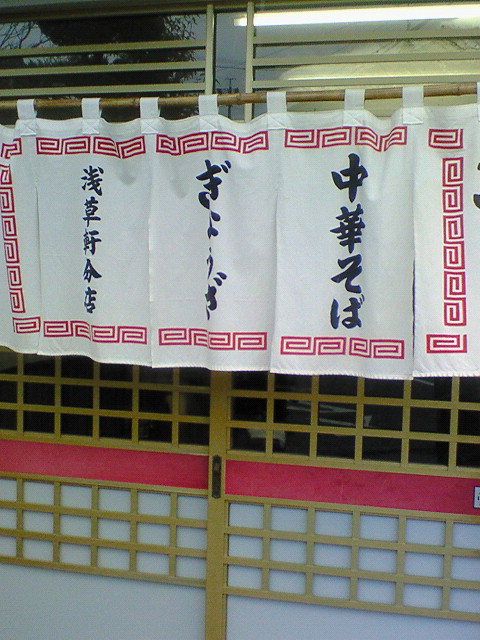 中華そば
ぎょうざ
浅草軒分店